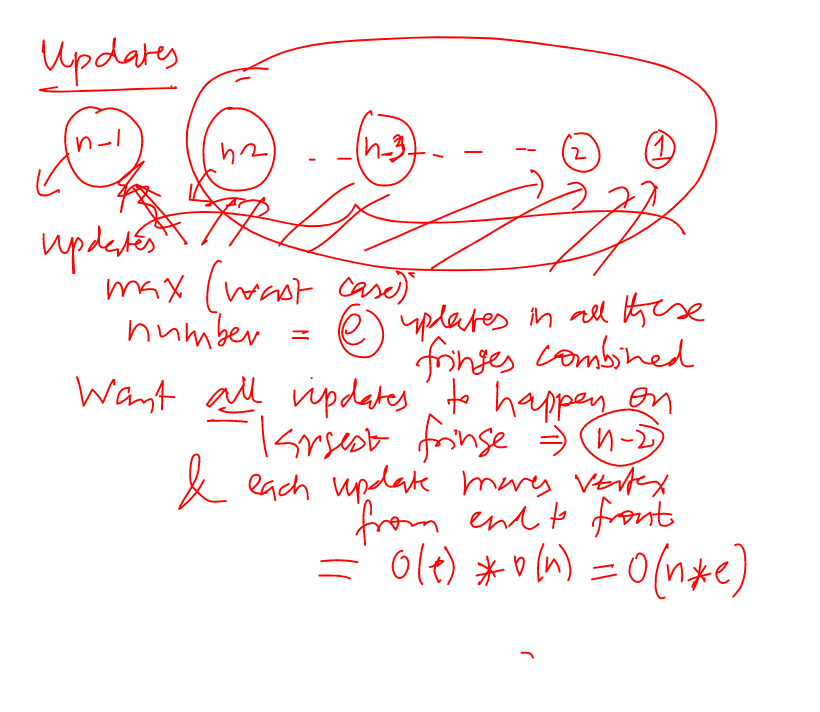 Updates
n-1 n-2 - - n-3 - - - -- 2 1
updates
max (worst case)
number = e updates in all these
fringes combined
Want all updates to happen on
largest fringe ⇒ n-2
& each update moves vertex
from end to front
= O(e) * O(n) = O(n*e)